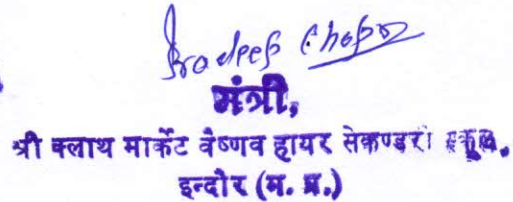 Pradeep Chopra
मंत्री,
श्री क्लाथ मार्केट वैष्णव हायर सेकण्डरी स्कूल,
इन्दोर (म. प्र.)